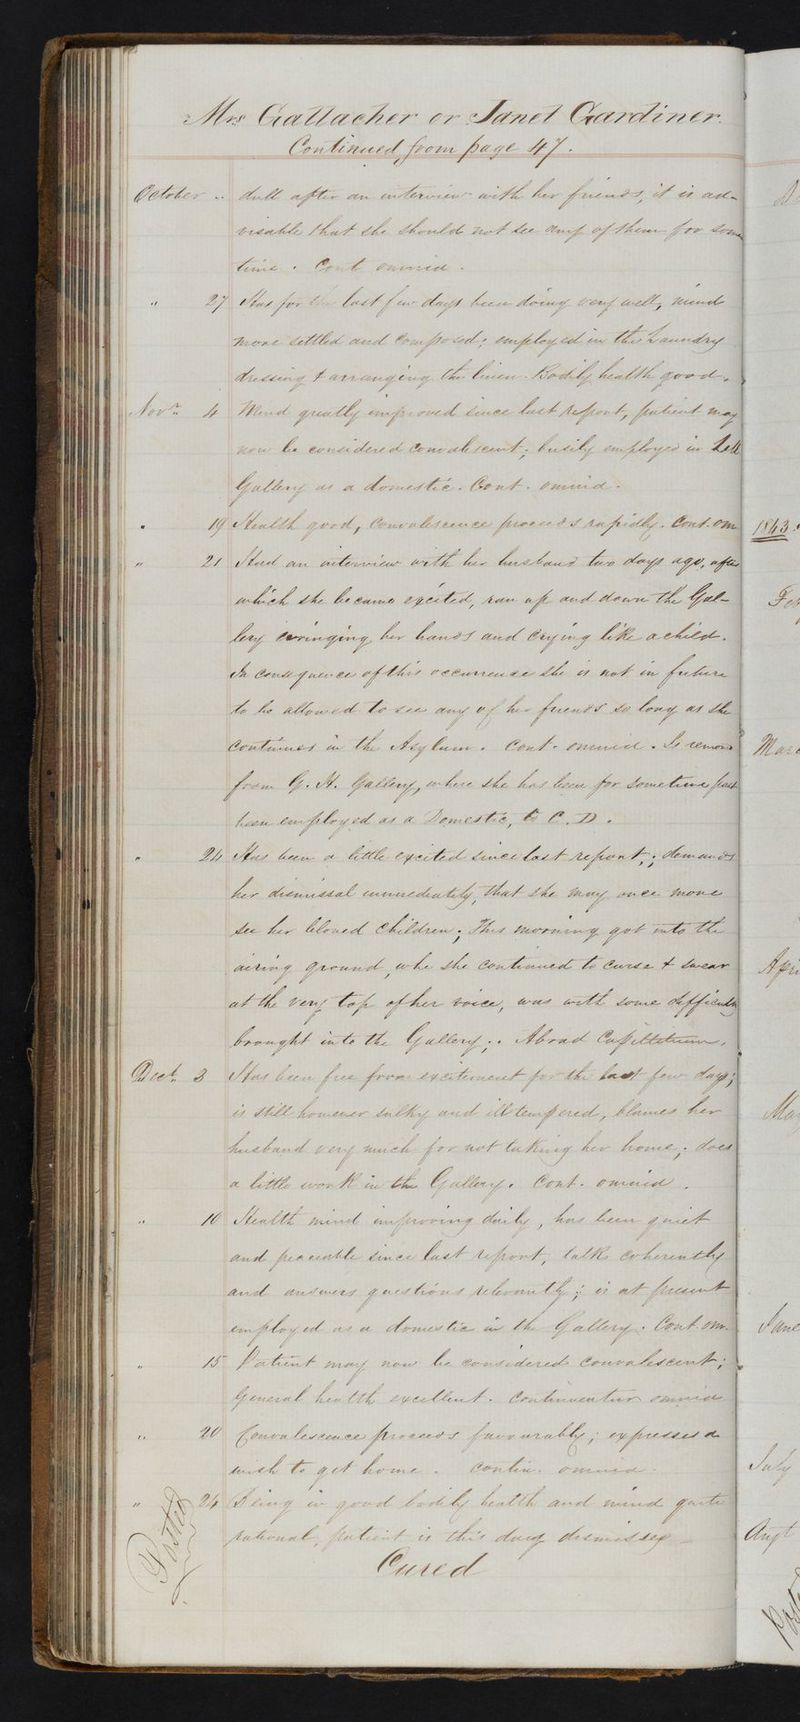 Mrs Gallacher or Janet Gardiner.
Continued from page 47.
October " dull after an interview with her friends, it is ad-
visable that she should not see any of them for some
time. Cont omnia.
" 27 Has for the last few days been doing very well, mind
more settled and composed; employed in the Laundry
dressing & arranging the linen. Bodily health good.
Novr 4 Mind greatly improved since last report, patient may
now be considered convalescent; busily employed in
Gallery as a domestic. Cont. omnia.
" 19 Health good, convalescence proceeds rapidly. Cont. om
" 21 Had an interview with her husband two days ago, after
which she became excited, ran up and down the Gal-
lery wringing her hands and crying like a child.
In consequence of this occurrence she is not in future
to be allowed to see any of her friends so long as she
continues in the Asylum. Cont. omnia. Is remov
from G. H. Gallery, where she has been for sometime past
been employed as a Domestic, to C. D.
" 24 Has been a little excited since last report; demands
her dismissal immediately, that she may once more
see her beloved children; This morning got into the
airing ground, whe she continued to curse & swear
at the very top of her voice, was with some difficulty
brought into the Gallery;. Abrad Capillitium.
Decr 3 Has been free from excitement for the last few days;
is still however sulky and ill tempered, blames her
husband very much for not taking her home; does
a little work in the Gallery. Cont. omnia.
" 10 Health mind improving daily, has been quiet
and peaceable since last report, talks coherently
and answers questions relevantly; is at present
employed as a domestic in the Gallery. Cont. om.
" 15 Patient may now be considered convalescent;
General health excellent. Continuentur omnia
" 20 Convalescence proceeds favourably; expresses a
wish to get home. Contin. omnia.
" 24 Being in good bodily health and mind quite
rational, patient is this day dismissed
Cured
Posted
1843
Mar
Apri
May
June
July
Augt